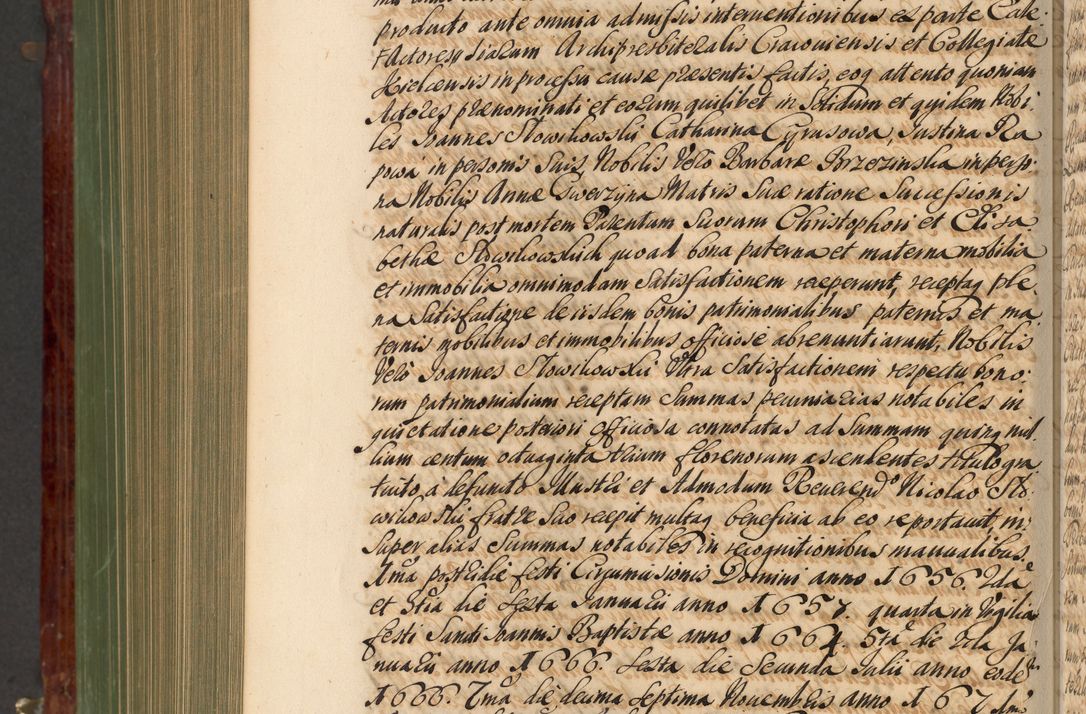 producto ante omnia admissis interventionibus ex parte Cale:
Actores Siarum Archipresbiteralis Cracoviensis et Collegiatæ
Kielcensis in processu causæ præsentis factis, eoq attento quoniam
Actores prænominati et eorum quilibet in Solidum et quidem Nobi:
les Joannes Słowikowski Catharina Cyrusowa, Justina Ra
powa in personis Suis, Nobilis Vero Barbaræ Brzezinska in perso:
na Nobilis Annæ Gwerzyna Matris Suæ ratione Successionis
naturalis post mortem Parentum Suorum Christophori et Eliza
bethæ Słowikowskich quoad bona paterna et materna mobilia
et immobilia omnimodam Satisfactionem receperunt, receptaq ple
na Satisfactione de iisdem bonis patrimonialibus paternis et ma:
ternis mobilibus et immobilibus officiose abrenuntiarunt, Nobilis
Vero Joannes Słowikowski Ultra Satisfactionem respectu bono:
rum patrimonialium receptam Summas pecuniarias notabiles in
quietatione posteriori officiosa connotatas ad Summam quinq mil:
lium centum octuaginta trium florenorum ascendentes titulo gra
tuito, à defuncto Illustri et Admodum Reverendo Nicolao Sło:
wikowski fratre Suo recepit multaq beneficia ab eo reportavit, in:
super alias Summas notabiles in recognitionibus manualibus
1ma postridie festi Circumcisionis Domini anno 1656. 2da
et 3tia die Sexta Januarii anno 1657. quarta in Vigilia
festi Sancti Joannis Baptistæ anno 1664. 5ta die 2da Ja
nuarii anno 1666. Sexta die Secunda Julii anno eodem
1666. 7ma die decima Septima Novembris anno 167